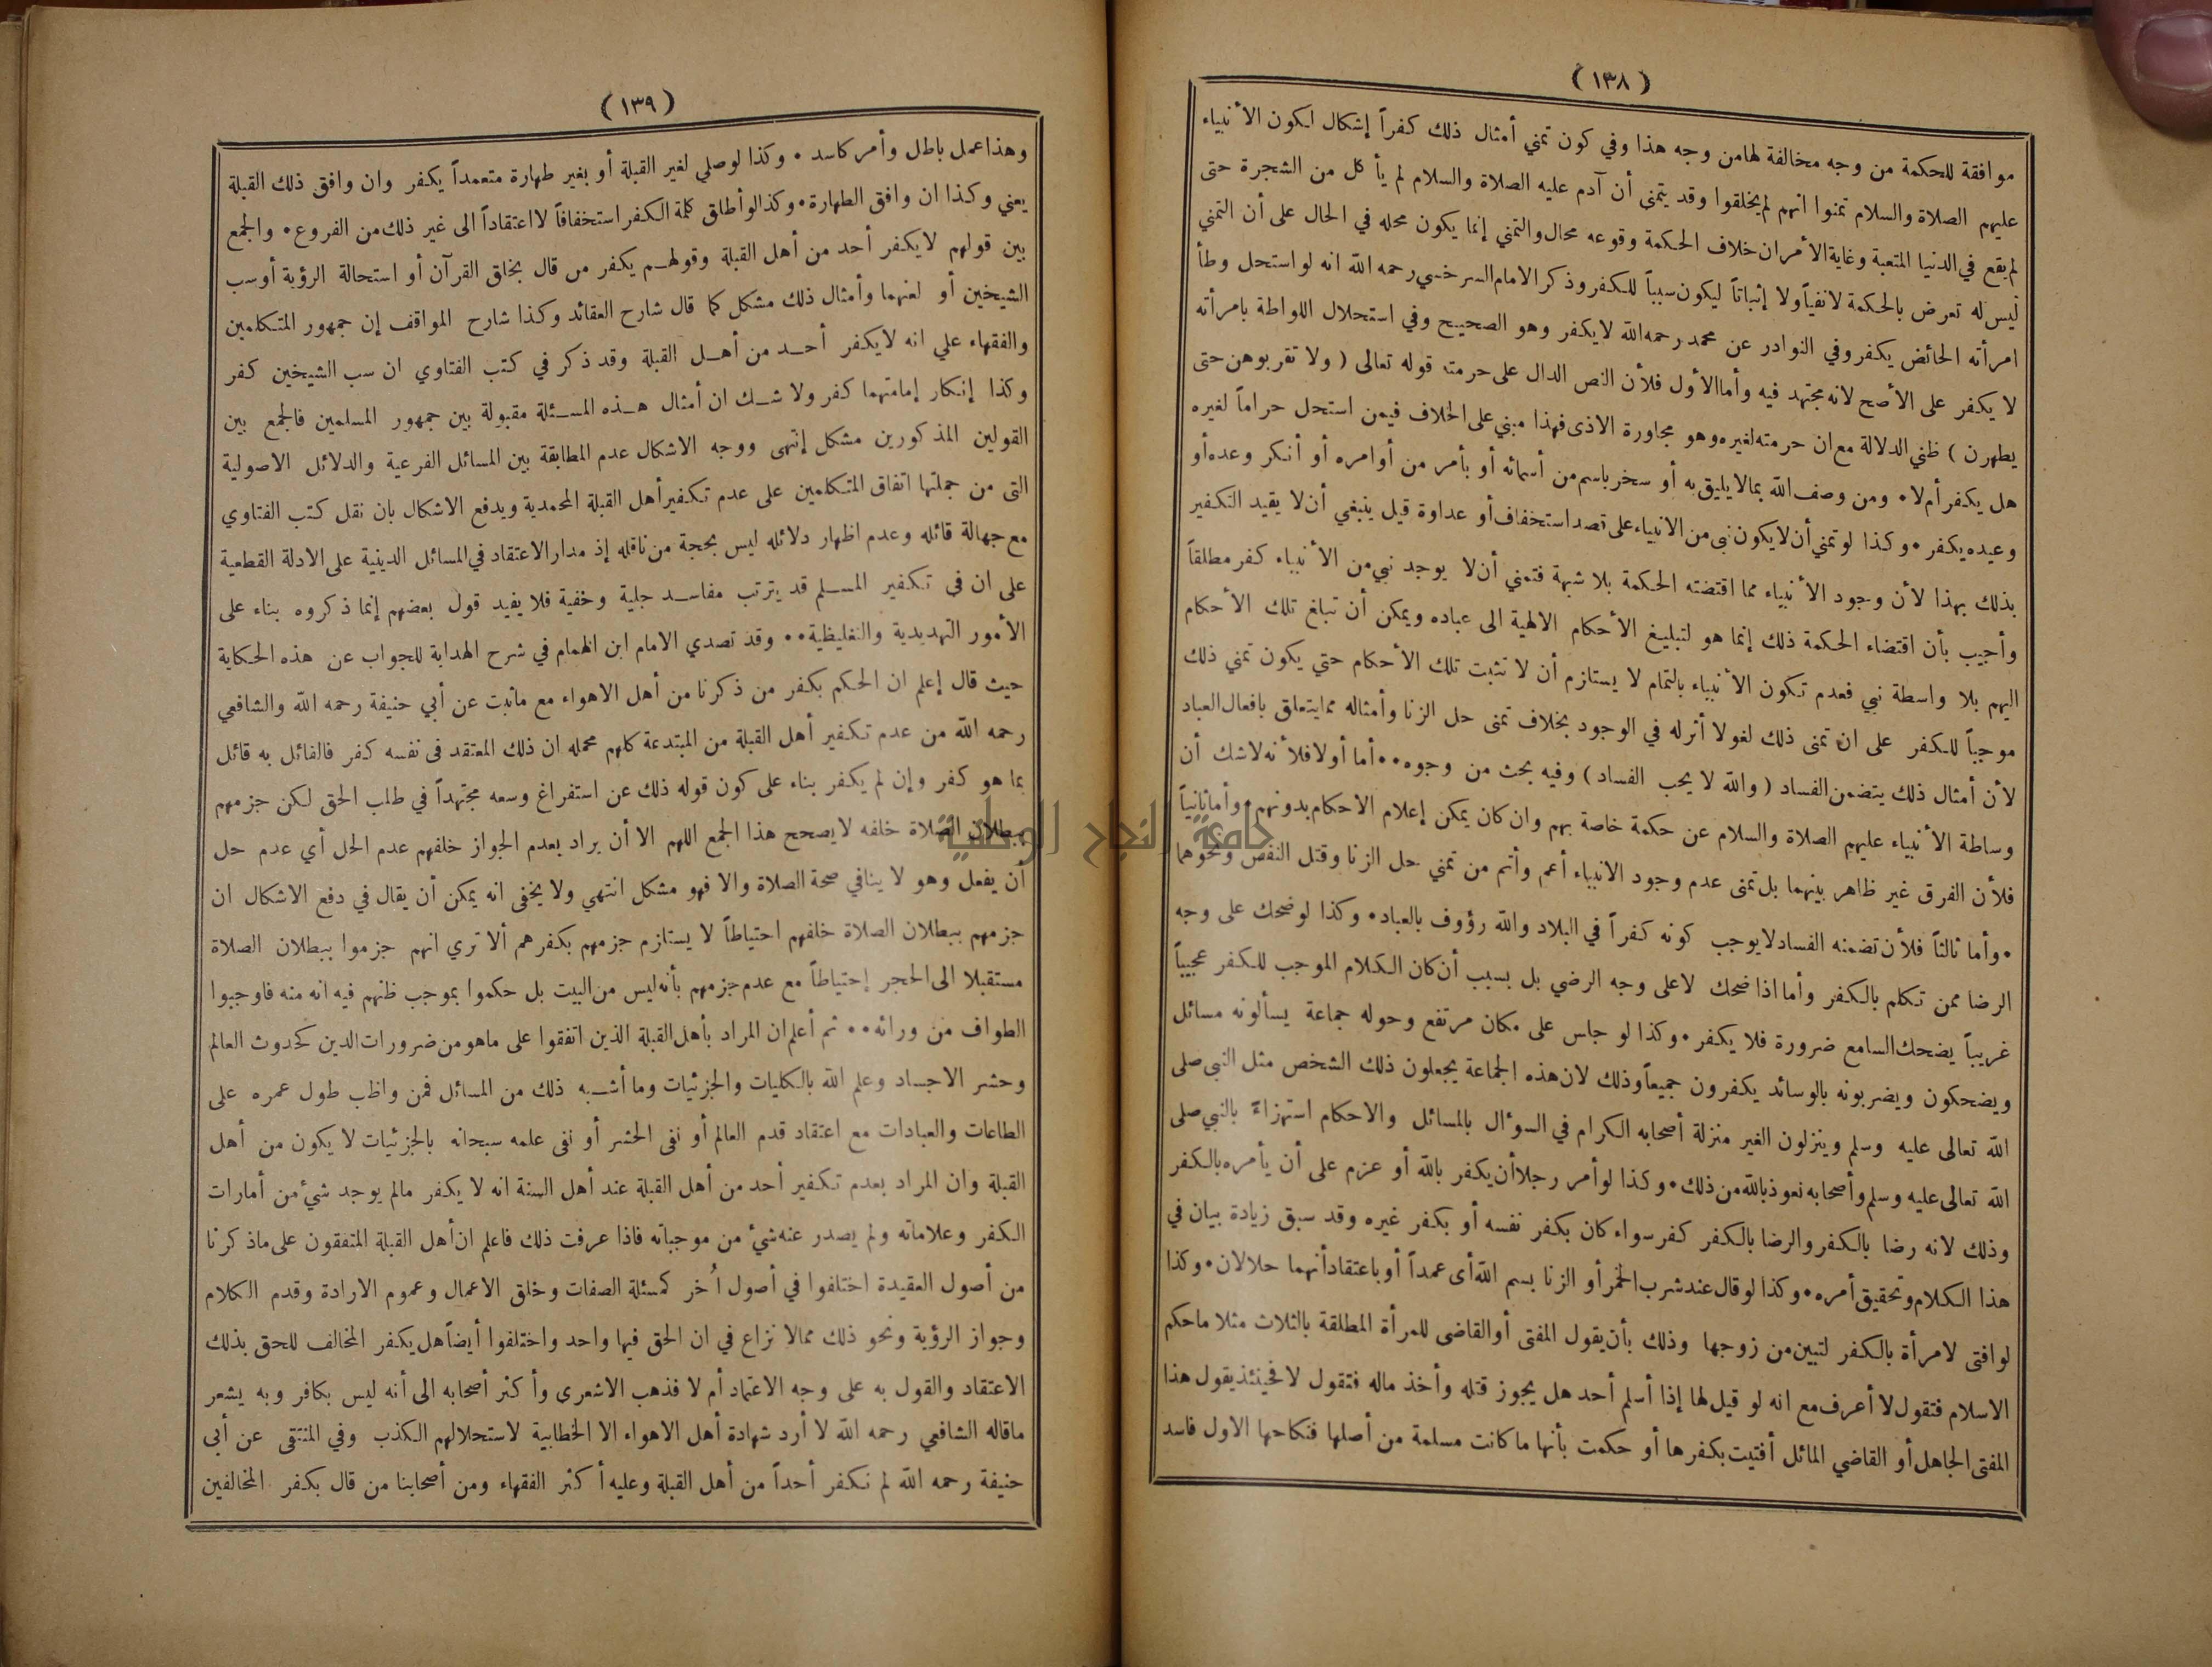 (١٣٨)
موافقة للحكمة من وجه مخالفة لها من وجه هذا وفي كون تمني أمثال ذلك كفراً إشكال لكون الأنبياء
عليهم الصلاة والسلام تمنوا انهم لم يخلقوا وقد يتمنى أن آدم عليه الصلاة والسلام لم يأكل من الشجرة حتى
لم يقع في الدنيا المتعبة وغاية الأمر ان خلاف الحكمة وقوعه محال والتمني إنما يكون محله في الحال على أن التمني
ليس له تعرض بالحكمة لا نفياً ولا إثباتاً ليكون سبباً للكفر وذكر الامام السرخسي رحمه الله انه لو استحل وطأ
امرأته الحائض يكفر وفي النوادر عن محمد رحمه الله لا يكفر وهو الصحيح وفي استحلال اللواطة بامرأته
لا يكفر على الأصح لانه مجتهد فيه وأما الأول فلأن النص الدال على حرمته قوله تعالى ( ولا تقربوهن حتى
يطهرن ) ظني الدلالة مع ان حرمته لغيره وهو مجاورة الاذى فهذا مبني على الخلاف فيمن استحل حراماً لغيره
هل يكفر أم لا • ومن وصف الله بما لا يليق به أو سخر باسم من أسمائه أو بأمر من أوامره أو أنكر وعده أو
وعيده يكفر • وكذا لو تمني أن لا يكون نبى من الانبياء على قصد استخفاف أو عداوة قيل ينبغي أن لا يقيد التكفير
بذلك بهذا لأن وجود الأنبياء مما اقتضته الحكمة بلا شبهة فتمني أن لا يوجد نبي من الأنبياء كفر مطلقاً
وأجيب بأن اقتضاء الحكمة ذلك إنما هو لتبليغ الأحكام الالهية الى عباده ويمكن أن تبلغ تلك الأحكام
اليهم بلا واسطة نبي فعدم تكون الأنبياء بالتمام لا يستلزم أن لا تثبت تلك الأحكام حتي يكون تمني ذلك
موجباً للكفر على ان تمنى ذلك لغو لا أثر له في الوجود بخلاف تمنى حل الزنا وأمثاله مما يتعلق بافعال العباد
لأن أمثال ذلك يتضمن الفساد ( والله لا يحب الفساد ) وفيه بحث من وجوه •• أما أولا فلأنه لا شك أن
وساطة الأنبياء عليهم الصلاة والسلام عن حكمة خاصة بهم وان كان يمكن إعلام الاحكام بدونهم وأما ثانياً
فلأن الفرق غير ظاهر بينهما بل تمنى عدم وجود الانبياء أعم وأتم من تمني حل الزنا وقتل النفس ونحوهما
• وأما ثالثاً فلأن تضمنه الفساد لا يوجب كونه كفراً في البلاد والله رؤوف بالعباد • وكذا لو ضحك على وجه
الرضا ممن تكلم بالكفر وأما اذا ضحك لا على وجه الرضي بل بسبب أن كان الكلام الموجب للكفر عجيباً
غريباً يضحك السامع ضرورة فلا يكفر • وكذا لو جلس على مكان مرتفع وحوله جماعة يسألونه مسائل
ويضحكون ويضربونه بالوسائد يكفرون جميعاً وذلك لان هذه الجماعة يجعلون ذلك الشخص مثل النبي صلى
الله تعالى عليه وسلم وينزلون الغير منزلة أصحابه الكرام في السوأل بالمسائل والاحكام استهزاءً بالنبي صلى
الله تعالى عليه وسلم وأصحابه نعوذ بالله من ذلك • وكذا لو أمر رجلا أن يكفر بالله أو عزم على أن يأمره بالكفر
وذلك لانه رضا بالكفر والرضا بالكفر كفر سواء كان بكفر نفسه أو بكفر غيره وقد سبق زيادة بيان في
هذا الكلام وتحقيق أمره • وكذا لو قال عند شرب الخمر أو الزنا بسم الله أى عمداً أو باعتقاد أنهما حلالان • وكذا
لو افتى لامرأة بالكفر لتبين من زوجها وذلك بأن يقول المفتى أو القاضى للمرأة المطلقة بالثلاث مثلا ما حكم
الاسلام فتقول لا أعرف مع انه لو قيل لها إذا أسلم أحد هل يجوز قتله وأخذ ماله فتقول لا فحينئذ يقول هذا
المفتى الجاهل أو القاضي المائل أفتيت بكفرها أو حكمت بأنها ما كانت مسلمة من أصلها فنكاحها الاول فاسد
(١٣٩)
وهذا عمل باطل وأمر كاسد • وكذا لو صلي لغير القبلة أو بغير طهارة متعمداً يكفر وان وافق ذلك القبلة
يعني وكذا ان وافق الطهارة • وكذا لو أطلق كلمة الكفر استخفافاً لا اعتقاداً الى غير ذلك من الفروع • والجمع
بين قولهم لا يكفر أحد من أهل القبلة وقولهم يكفر من قال بخلق القرآن أو استحالة الرؤية أو سب
الشيخين أو لعنهما وأمثال ذلك مشكل كما قال شارح العقائد وكذا شارح المواقف إن جمهور المتكلمين
والفقهاء علي انه لا يكفر أحد من أهل القبلة وقد ذكر في كتب الفتاوي ان سب الشيخين كفر
وكذا إنكار إمامتهما كفر ولا شك ان أمثال هذه المسئلة مقبولة بين جمهور المسلمين فالجمع بين
القولين المذكورين مشكل إنتهى ووجه الاشكال عدم المطابقة بين المسائل الفرعية والدلائل الاصولية
التى من جملتها اتفاق المتكلمين على عدم تكفير أهل القبلة المحمدية ويدفع الاشكال بان نقل كتب الفتاوي
مع جهالة قائله وعدم اظهار دلائله ليس بحجة من ناقله إذ مدار الاعتقاد في المسائل الدينية على الادلة القطعية
على ان في تكفير المسلم قد يترتب مفاسد جلية وخفية فلا يفيد قول بعضهم إنما ذكروه بناء على
الأمور التهديدية والتغليظية •• وقد تصدي الامام ابن الهمام في شرح الهداية للجواب عن هذه الحكاية
حيث قال إعلم ان الحكم بكفر من ذكرنا من أهل الاهواء مع ماثبت عن أبي حنيفة رحمه الله والشافعي
رحمه الله من عدم تكفير أهل القبلة من المبتدعة كلهم محمله ان ذلك المعتقد فى نفسه كفر فالقائل به قائل
بما هو كفر وإن لم يكفر بناء على كون قوله ذلك عن استفراغ وسعه مجتهداً في طلب الحق لكن جزمهم
ببطلان الصلاة خلفه لا يصحح هذا الجمع اللهم الا أن يراد بعدم الجواز خلفهم عدم الحل أي عدم حل
أن يفعل وهو لا ينافي صحة الصلاة والا فهو مشكل انتهي ولا يخفى انه يمكن أن يقال في دفع الاشكال ان
جزمهم ببطلان الصلاة خلفهم احتياطاً لا يستلزم جزمهم بكفرهم ألا تري انهم جزموا ببطلان الصلاة
مستقبلا الى الحجر إحتياطاً مع عدم جزمهم بأنه ليس من البيت بل حكموا بموجب ظنهم فيه انه منه فاوجبوا
الطواف من ورائه •• ثم أعلم ان المراد بأهل القبلة الذين اتفقوا على ما هو من ضرورات الدين كحدوث العالم
وحشر الاجساد وعلم الله بالكليات والجزئيات وما أشبه ذلك من المسائل فمن واظب طول عمره على
الطاعات والعبادات مع اعتقاد قدم العالم أو نفى الحشر أو نفى علمه سبحانه بالجزئيات لا يكون من أهل
القبلة وان المراد بعدم تكفير أحد من أهل القبلة عند أهل السنة انه لا يكفر مالم يوجد شيء من أمارات
الكفر وعلاماته ولم يصدر عنه شيء من موجباته فاذا عرفت ذلك فاعلم ان أهل القبلة المتفقون على ماذكرنا
من أصول العقيدة اختلفوا في أصول اُخر كمسئلة الصفات وخلق الاعمال وعموم الارادة وقدم الكلام
وجواز الرؤية ونحو ذلك ممالا نزاع في ان الحق فيها واحد واختلفوا أيضاً هل يكفر المخالف للحق بذلك
الاعتقاد والقول به على وجه الاعتماد أم لا فذهب الاشعرى وأكثر أصحابه الى أنه ليس بكافر وبه يشعر
ماقاله الشافعي رحمه الله لا أرد شهادة أهل الاهواء الا الخطابية لاستحلالهم الكذب وفي المنتقى عن أبي
حنيفة رحمه الله لم نكفر أحداً من أهل القبلة وعليه أكثر الفقهاء ومن أصحابنا من قال بكفر المخالفين
جامعة النجاح الوطنية